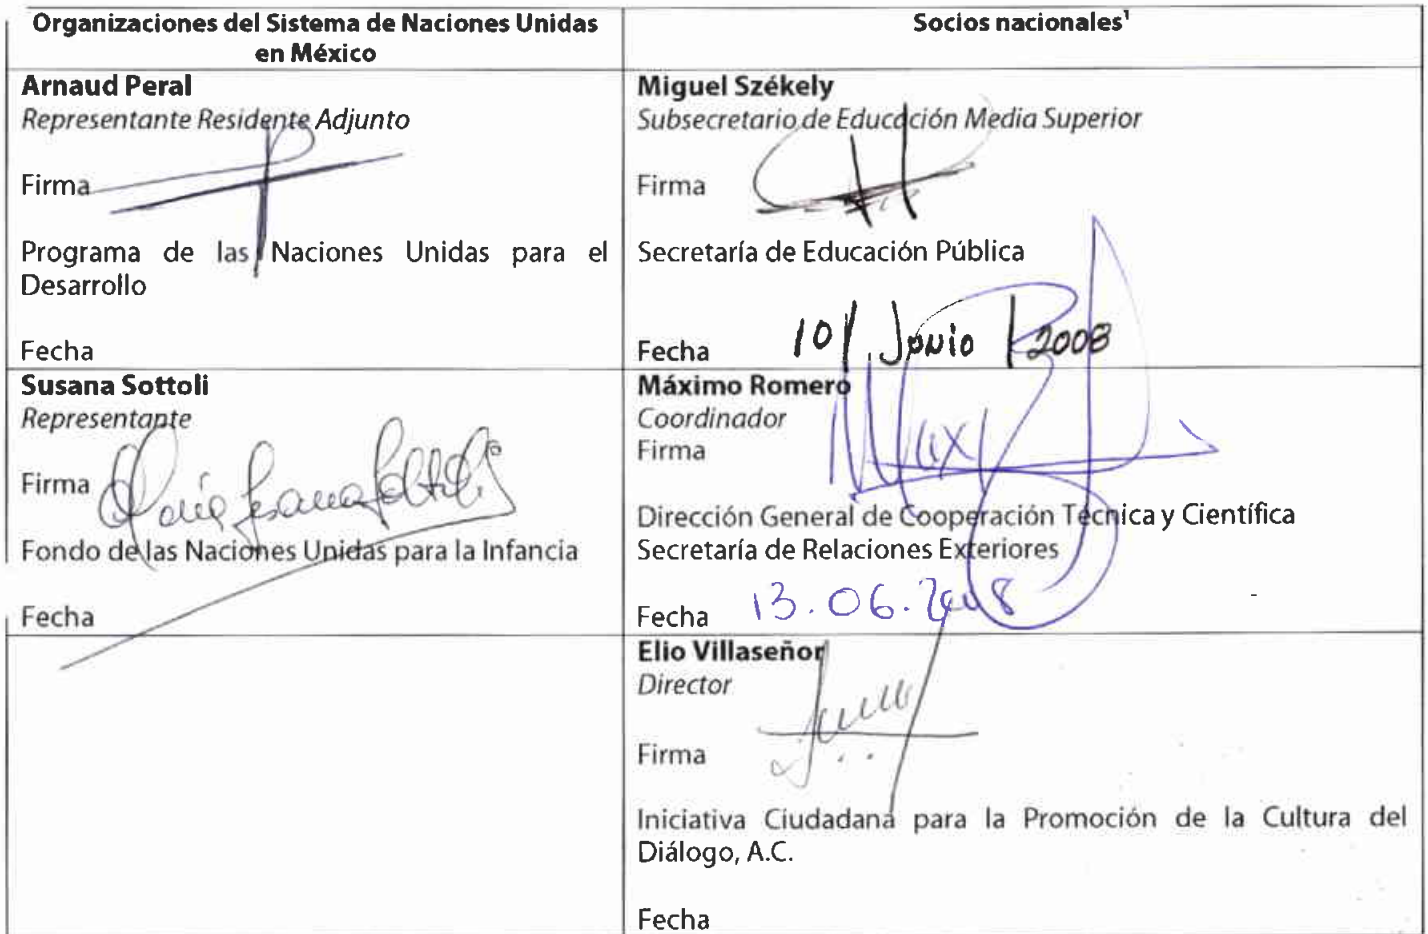 Organizaciones del Sistema de Naciones Unidas
en México
Socios nacionales¹
Arnaud Peral
Representante Residente Adjunto
Firma
Programa de las Naciones Unidas para el
Desarrollo
Fecha
Miguel Székely
Subsecretario de Educación Media Superior
Firma
Secretaría de Educación Pública
Fecha 10/ Junio /2008
Susana Sottoli
Representante
Firma
Fondo de las Naciones Unidas para la Infancia
Fecha
Máximo Romero
Coordinador
Firma
Dirección General de Cooperación Técnica y Científica
Secretaría de Relaciones Exteriores
Fecha 13.06.2008
Elio Villaseñor
Director
Firma
Iniciativa Ciudadana para la Promoción de la Cultura del
Diálogo, A.C.
Fecha